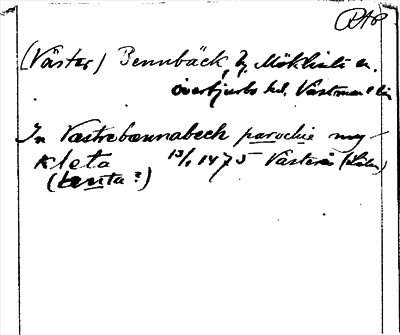 RAp
(Väster) Bennbäck, by, Möklinta sn.
Övertjurbo hd. Västmanl. län
In Vastrebænnabech parochie my-
kleta 13/1 1475 Västerås
(lenta?)